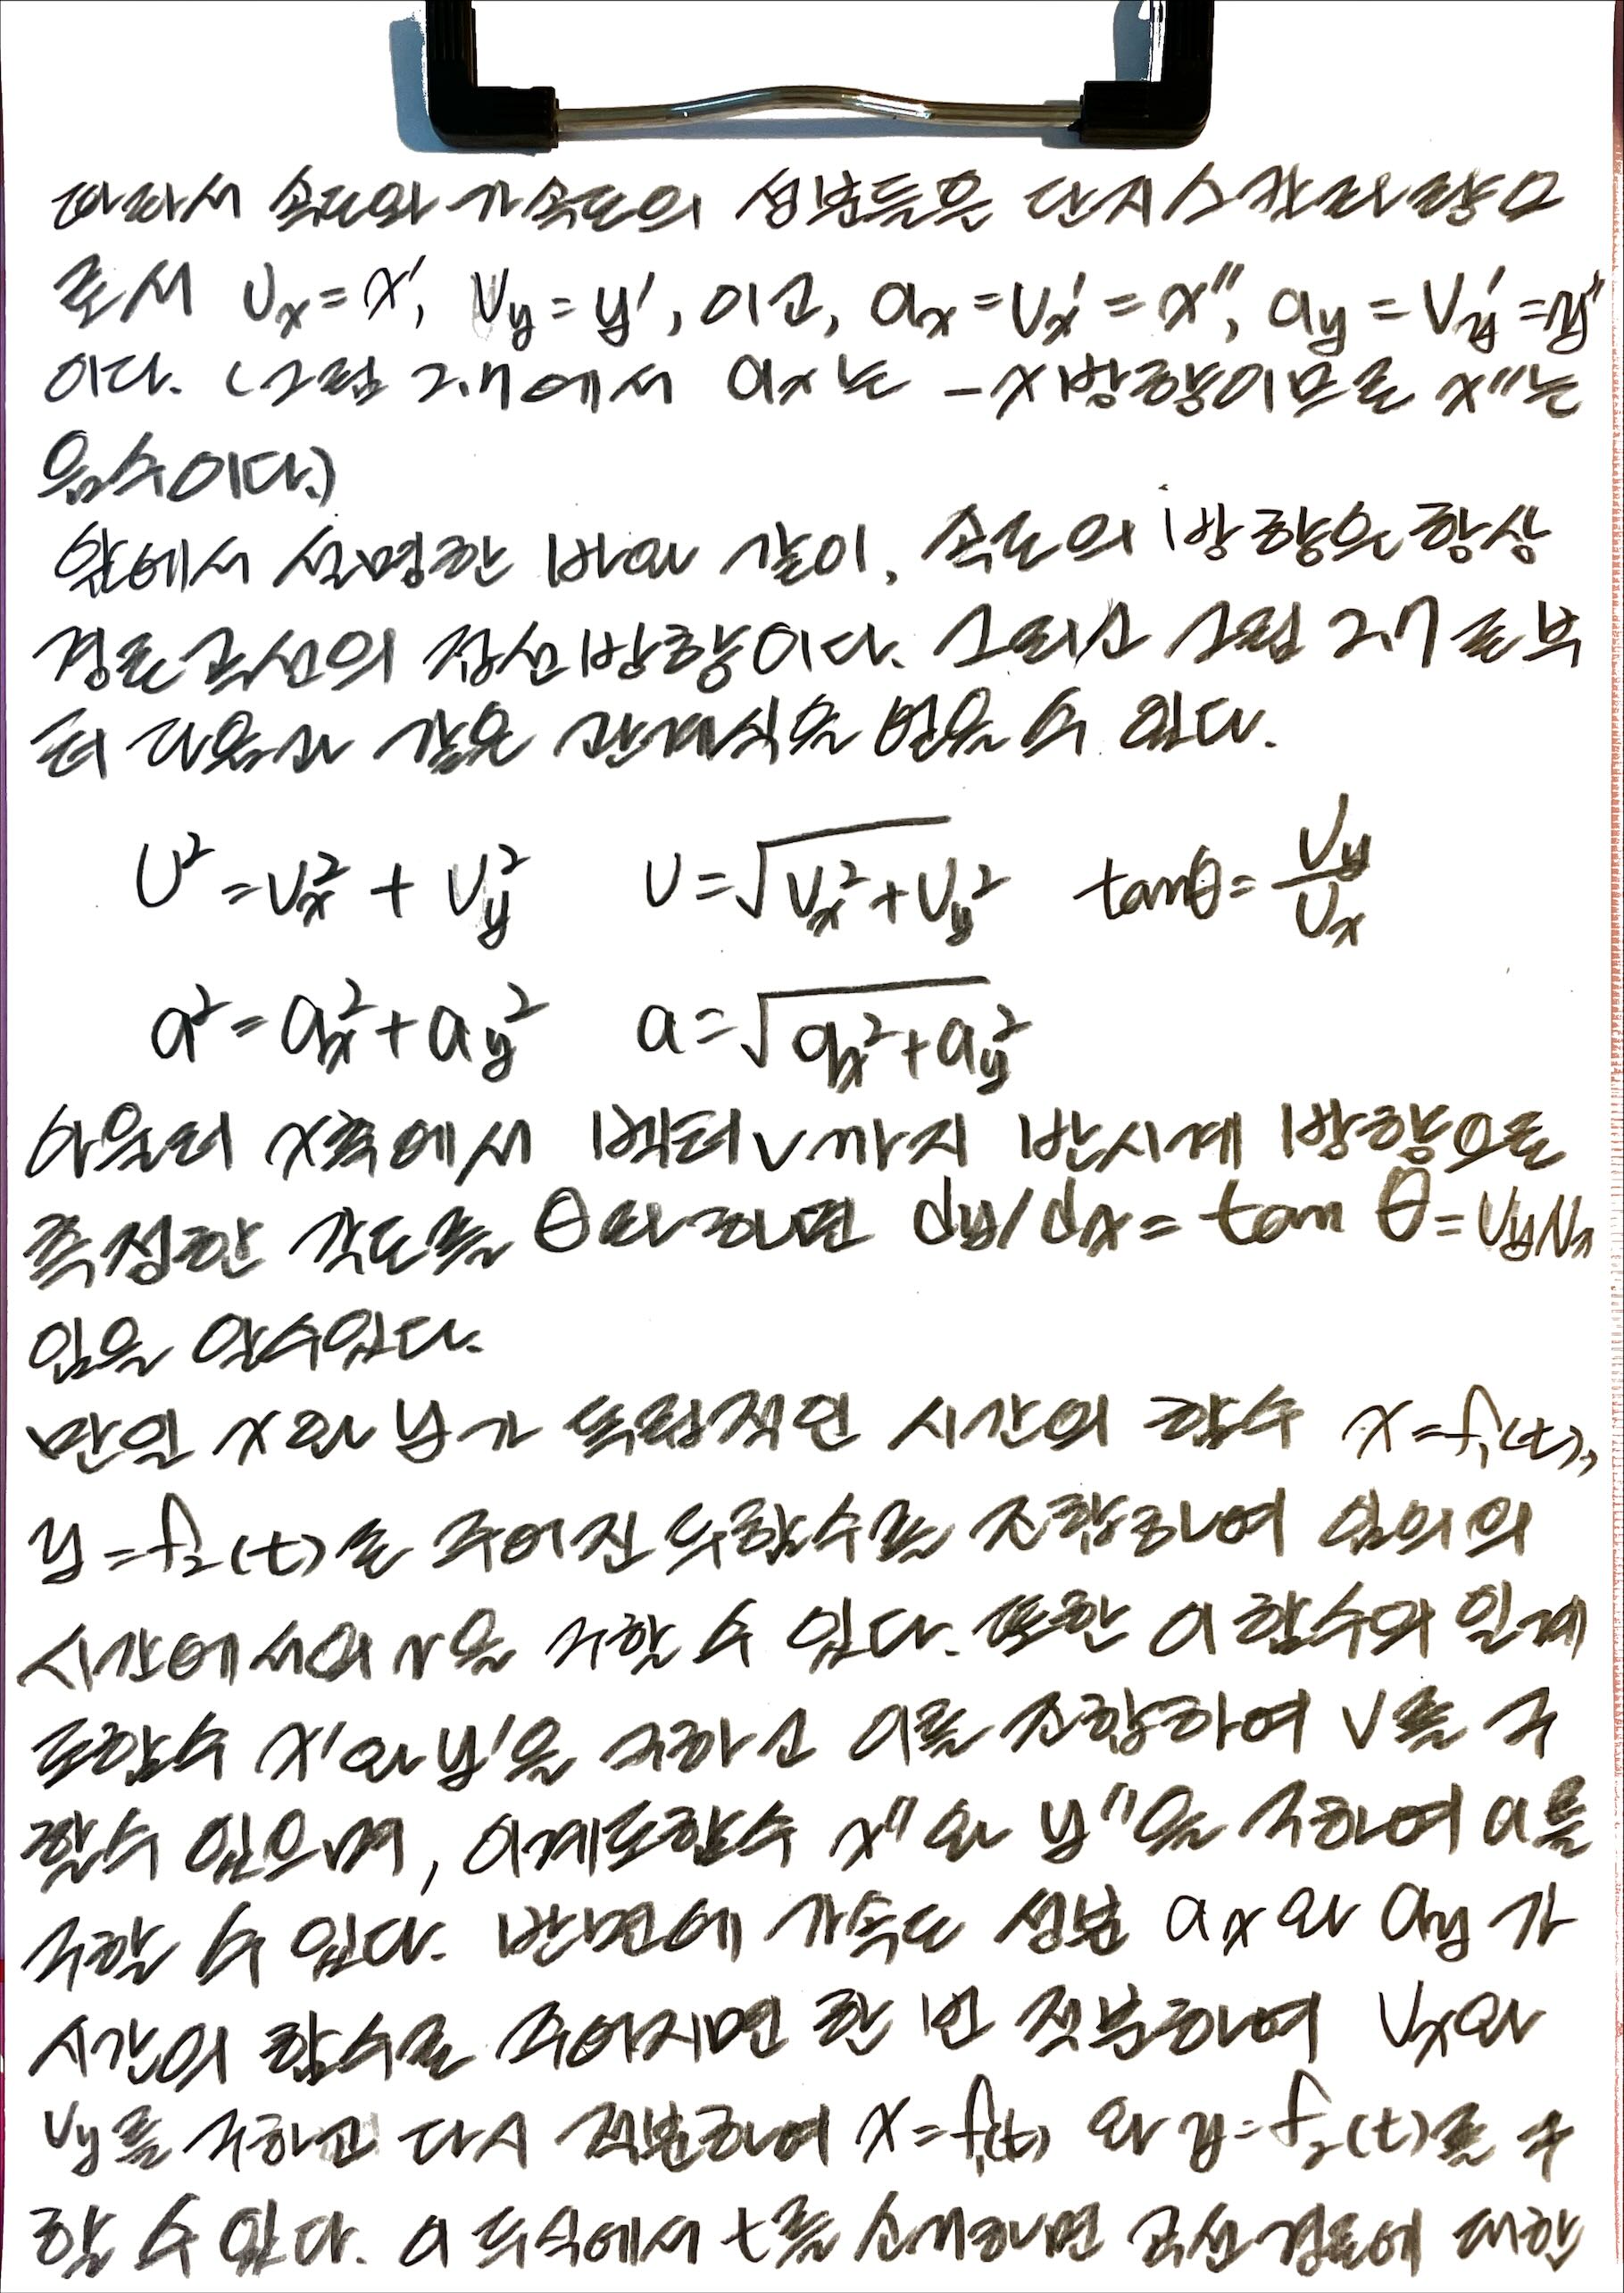 따라서 속도와 가속도의 성분들은 단지 스칼라량으
로서 vₓ = x′, v_y = y′, 이고, aₓ = vₓ′ = x″, a_y = v_y′ = y″
이다. (그림 2.7에서 aₓ는 -x방향이므로 x″는
음수이다.)
앞에서 설명한 바와 같이, 속도의 방향은 항상
경로곡선의 접선방향이다. 그리고 그림 2.7로부
터 다음과 같은 관계식을 얻을 수 있다.
v² = vₓ² + v_y² v = √(vₓ² + v_y²) tanθ = v_y/vₓ
a² = aₓ² + a_y² a = √(aₓ² + a_y²)
아울러 x축에서 벡터 v까지 반시계 방향으로
측정한 각도를 θ라 하면 dy/dx = tan θ = v_y/vₓ
임을 알수있다.
만일 x와 y가 독립적인 시간의 함수 x = f₁(t),
y = f₂(t)로 주어진 두함수를 조합하여 임의의
시간에서의 r을 구할 수 있다. 또한 이 함수의 일계
도함수 x′와 y′을 구하고 이를 조합하여 v를 구
할수 있으며, 이계도함수 x″와 y″을 구하여 a를
구할 수 있다. 반면에 가속도 성분 aₓ와 a_y가
시간의 함수로 주어지면 한 번 적분하여 vₓ와
v_y를 구하고 다시 적분하여 x = f₁(t) 와 y = f₂(t)를 구
할 수 있다. 이 두식에서 t를 소거하면 곡선경로에 대한